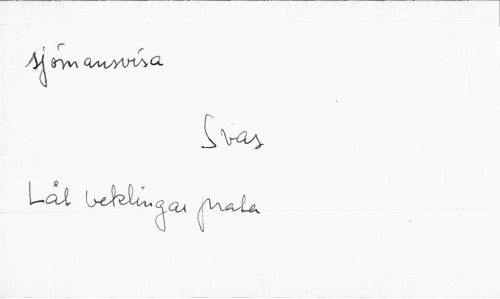 sjömansvisa
Svas
Låt veklingar prata